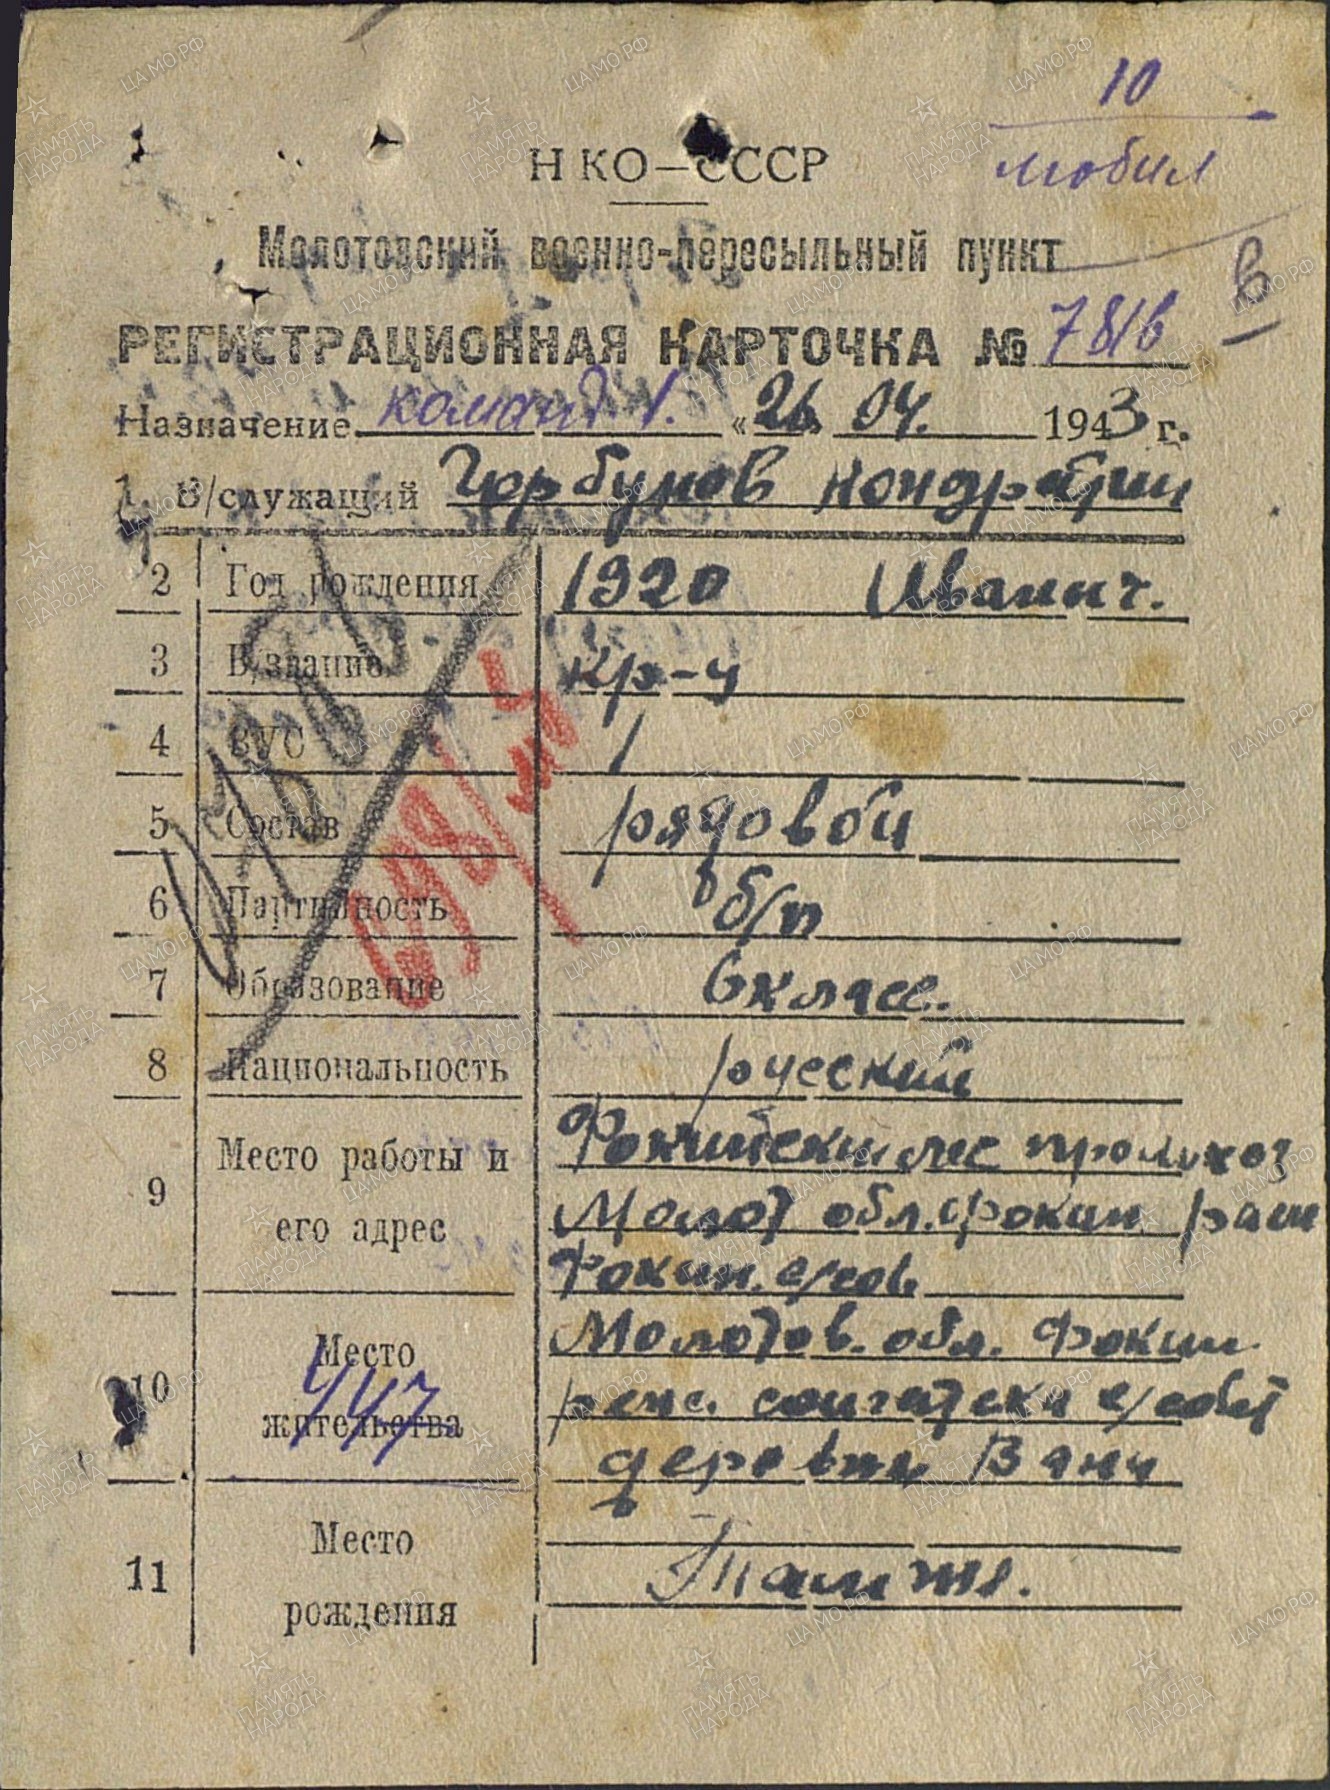 10
мобил
НКО—СССР
Молотовский военно-пересыльный пункт
в
РЕГИСТРАЦИОННАЯ КАРТОЧКА № 781в
Назначение команд 1. «26 04. 1943 г.
1. В/служащий Горбунов Кондратий
2 Год рождения 1920 Иванич.
3 В/звание кр-ц
4 ВУС 1
5 Состав рядовой
6 Партийность б/п
7 Образование 6 класс.
8 Национальность русский
9 Место работы и его адрес Фокинский лес промхоз
Молот обл. Фокин район
Фокин. с/сов
10 Место жительства Молотов. обл. Фокин
с/совет
деревня Ванч
447
11 Место рождения Там же.